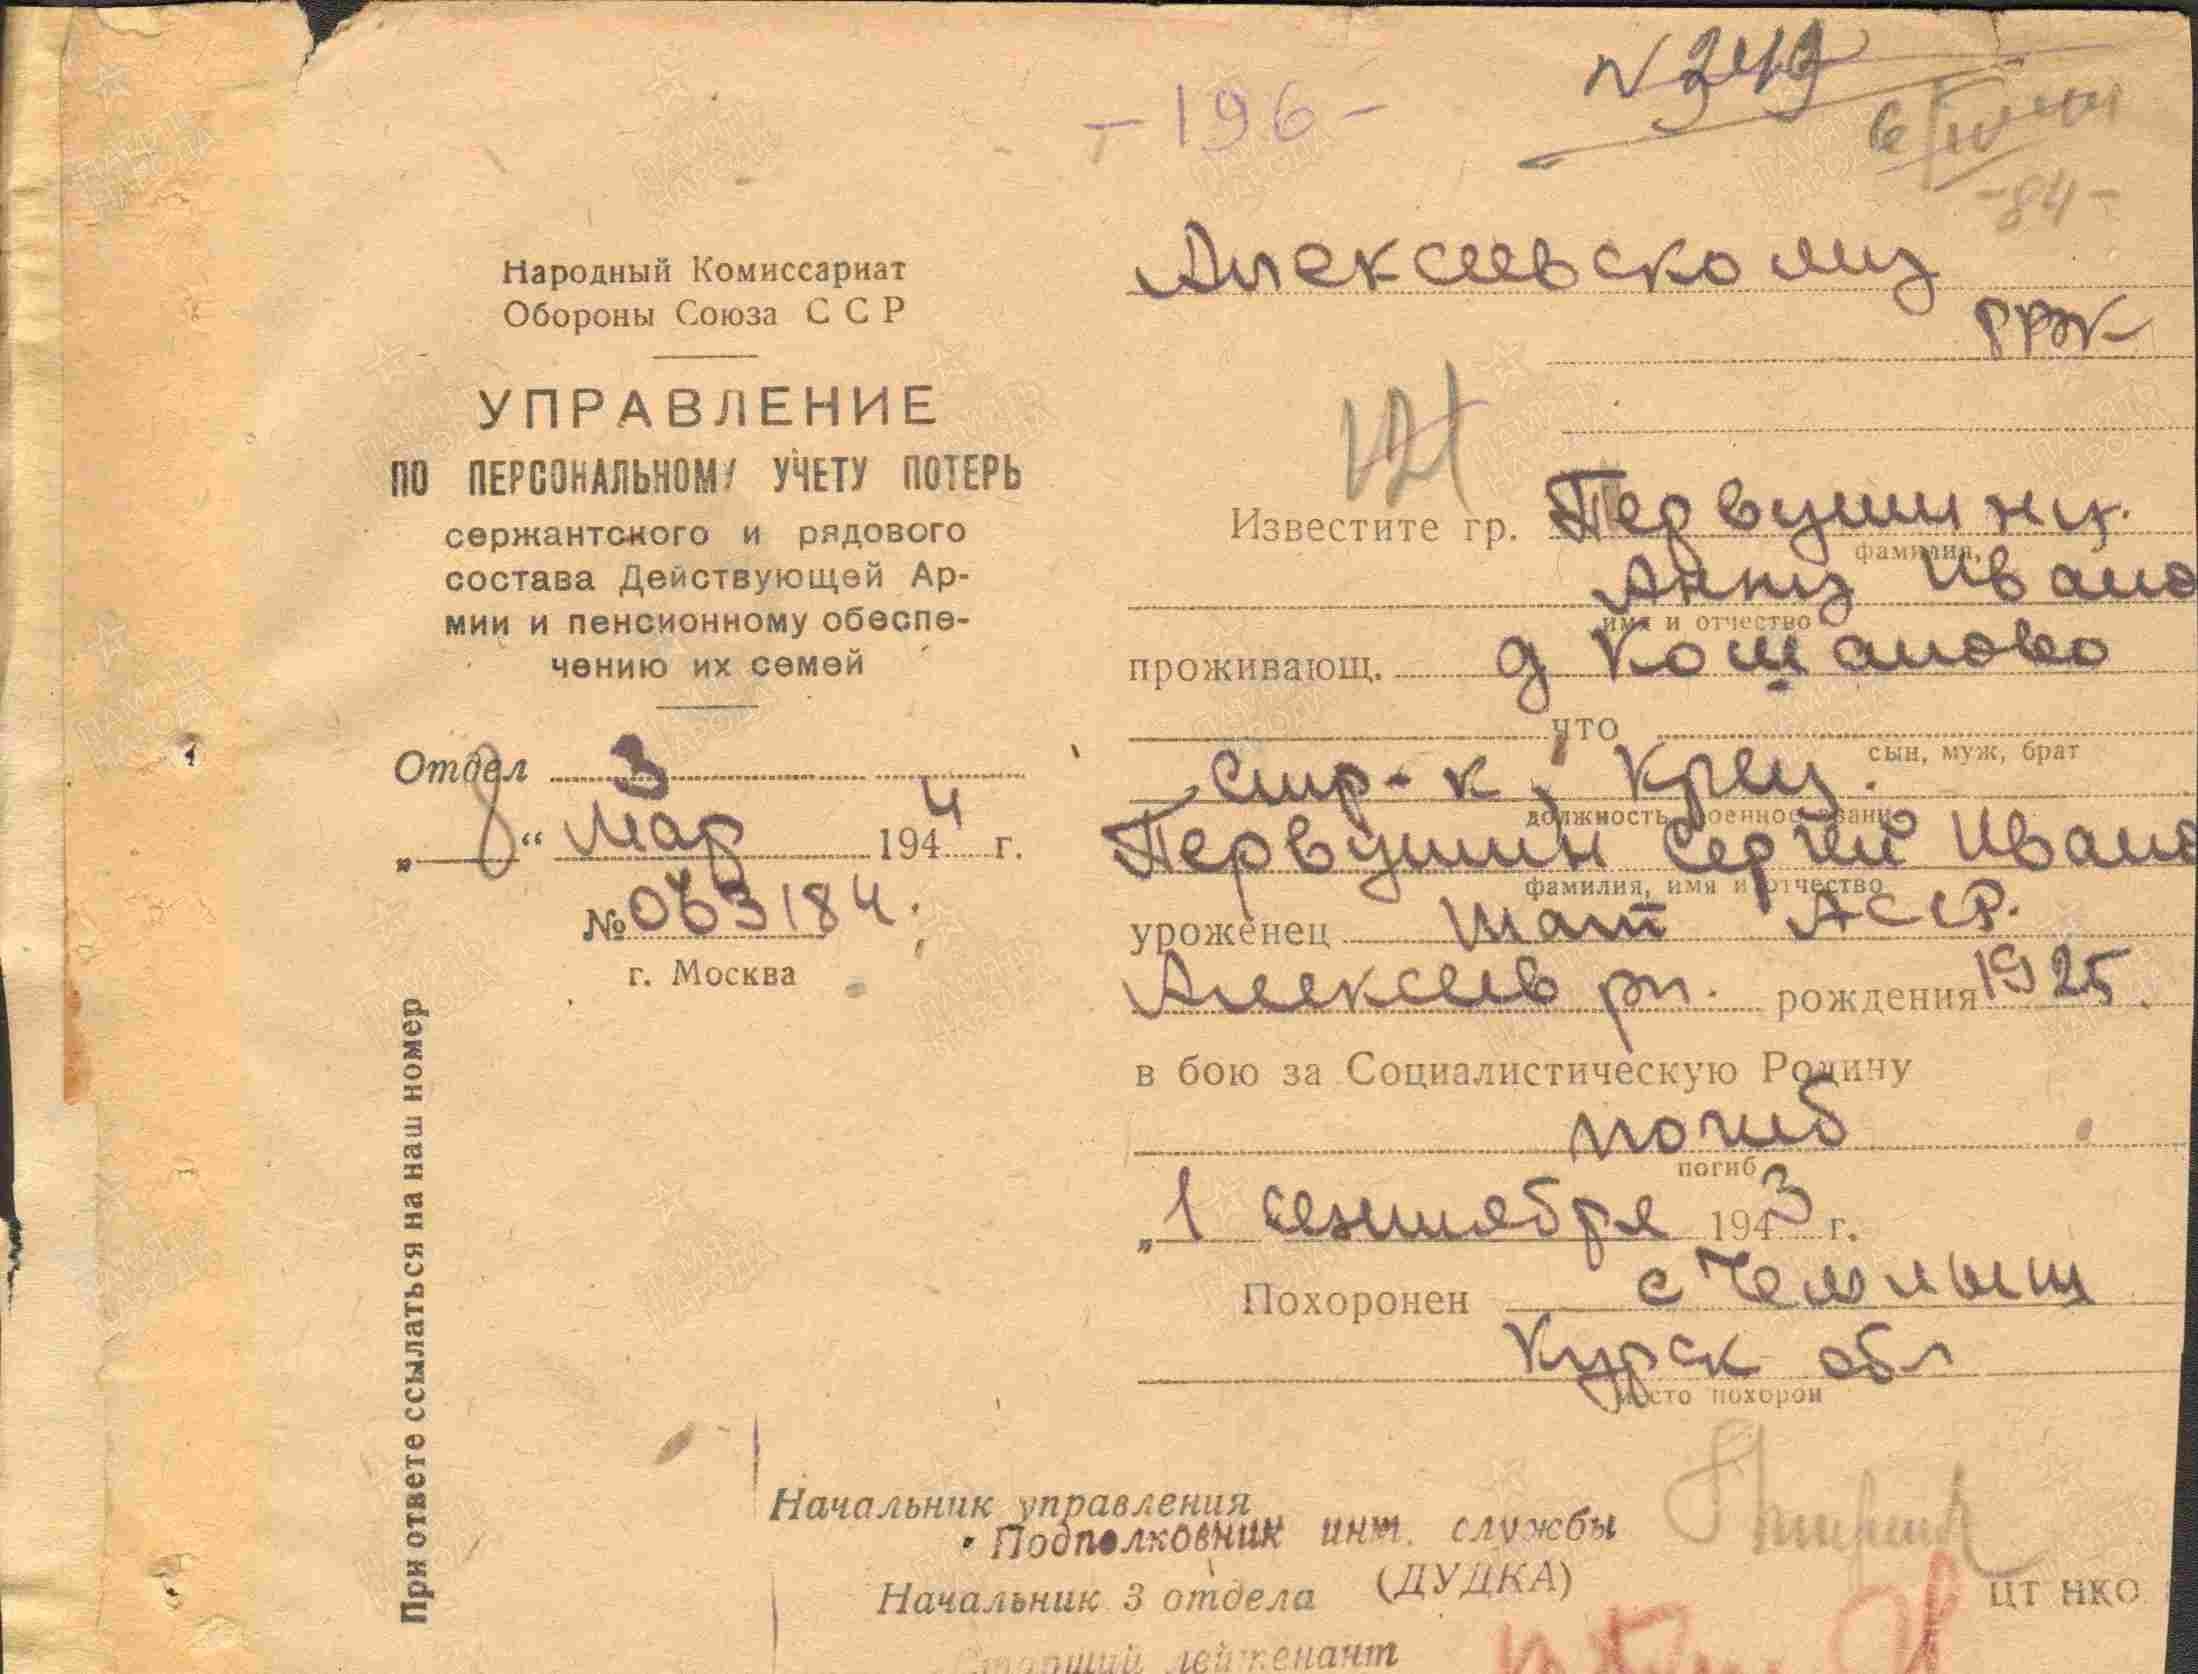 N 343
-196-
-84-
Народный Комиссариат
Обороны Союза ССР
УПРАВЛЕНИЕ
ПО ПЕРСОНАЛЬНОМУ УЧЕТУ ПОТЕРЬ
сержантского и рядового
состава Действующей Ар-
мии и пенсионному обеспе-
чению их семей
Отдел 3
„8“ Мар 1944 г.
№ 063184.
г. Москва
При ответе ссылаться на наш номер
Алексеевскому
РВК
Известите гр. Первушину
фамилия,
Анну Ивано
имя и отчество
проживающ. д Кощаково
что
сын, муж, брат
Стр-к, Крец.
должность военное звание
Первушин Сергей Ивано
фамилия, имя и отчество
уроженец Тат АССР.
Алексеев рн. рождения 1925.
в бою за Социалистическую Родину
погиб
погиб
„1 сентября 1943 г.
Похоронен с Чемлыш
Курск обл
место похорон
Начальник управления
Подполковник инт. службы
(ДУДКА)
Начальник 3 отдела
ЦТ НКО
Старший лейтенант
ПАМЯТЬ НАРОДА